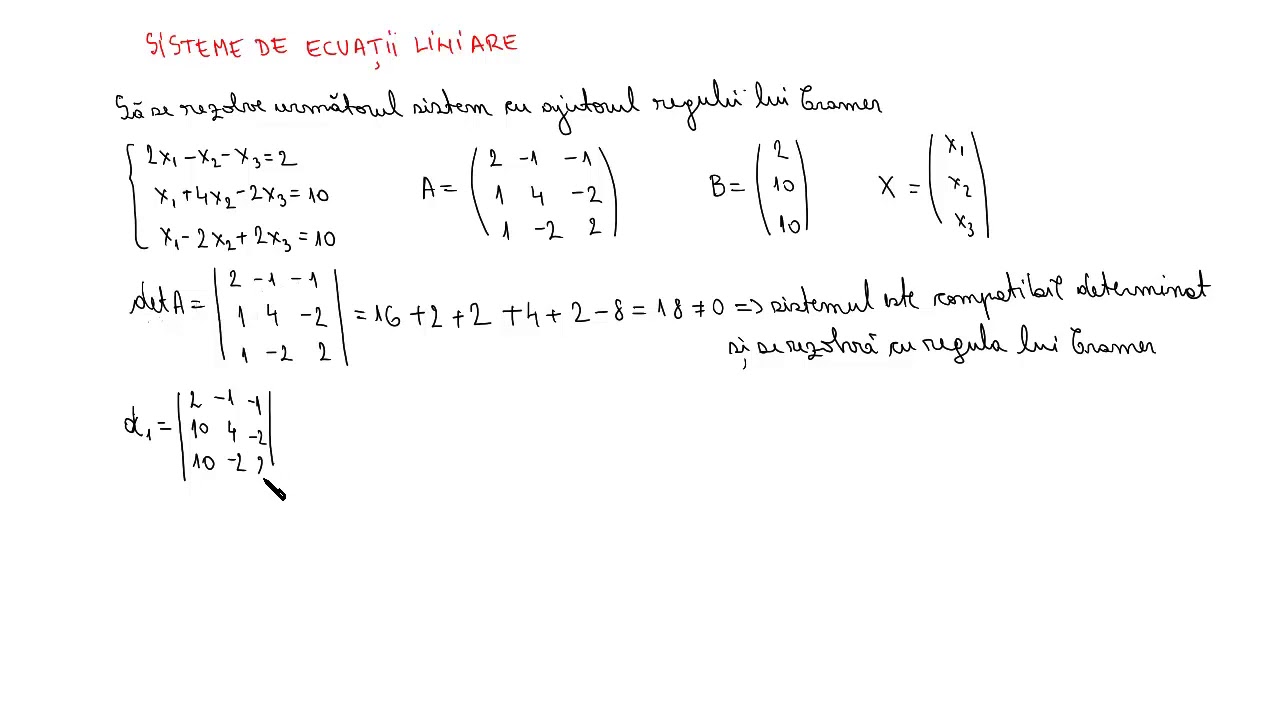 SISTEME DE ECUAȚII LINIARE
Să se rezolve următorul sistem cu ajutorul regulii lui Cramer
2x₁-x₂-x₃=2
x₁+4x₂-2x₃=10
x₁-2x₂+2x₃=10
A=
2 -1 -1
1 4 -2
1 -2 2
B=
2
10
10
X =
x₁
x₂
x₃
det A =
2 -1 -1
1 4 -2
1 -2 2
=16+2+2+4+2-8=18≠0 => sistemul este compatibil determinat
și se rezolvă cu regula lui Cramer
d₁ =
2 -1 -1
10 4 -2
10 -2 2